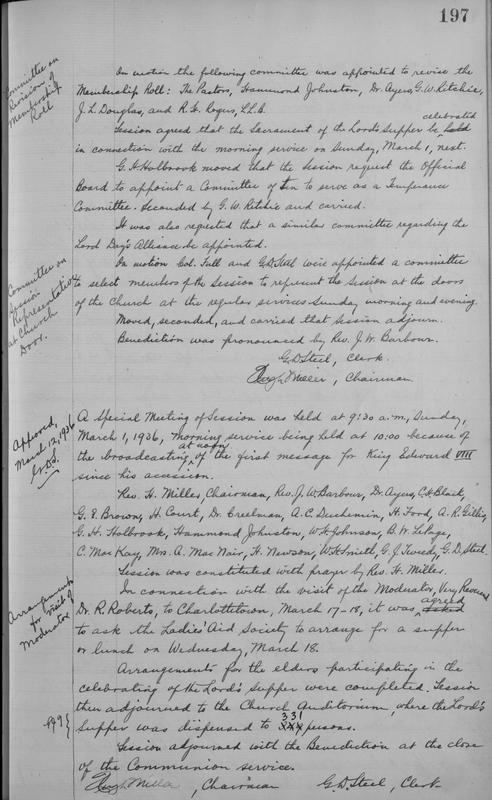 197
Committee on
Revision of
Membership
Roll
On motion the following committee was appointed to revise the
Membership Roll: The Pastors, Hammond Johnston, Dr. Ayers, G.W. Ritchie,
J. L. Douglas, and R. H. Rogers, LL.B.
celebrated
Session agreed that the Sacrament of the Lord's Supper be held
in connection with the morning service on Sunday, March 1, next.
G. H. Holbrook moved that the Session request the Official
Board to appoint a Committee of ten to serve as a Temperance
Committee. Seconded by G. W. Ritchie and carried.
It was also requested that a similar committee regarding the
Lord Day's Alliance be appointed.
Committee on
Session
Representatives
at Church
Door.
On motion Col. Full and G.D. Steel were appointed a committee
to select members of the Session to represent the Session at the doors
of the Church at the regular services Sunday morning and evening.
Moved, seconded, and carried that Session adjourn.
Benediction was pronounced by Rev. J. W. Barbour.
G. D. Steel, Clerk.
Hugh Miller, Chairman.
Approved,
March 12, 1936
G.D.S.
A Special Meeting of Session was held at 9:30 a.m., Sunday,
March 1, 1936, morning service being held at 10:00 because of
at noon
the broadcasting of the first message for King Edward VIII
since his accession.
Rev. H. Miller, Chairman, Rev. J. W. Barbour, Dr. Ayers, C.H. Black,
G. E. Brown, H. Court, Dr. Creelman, A. C. Duchemin, H. Ford, A. R. Gillis,
G. H. Holbrook, Hammond Johnston, W. H. Johnson, B. W. LePage,
C. MacKay, Mrs. A. MacNair, H. Newson, W.H. Smith, G. J. Tweedy, G.D. Steel.
Session was constituted with prayer by Rev. H. Miller.
Arrangements
for visit of
Moderator
In connection with the visit of the Moderator, Very Reverend
agreed
Dr. R. Roberts, to Charlottetown, March 17-18, it was asked
to ask the Ladies' Aid Society to arrange for a supper
or lunch on Wednesday, March 18.
Arrangements for the elders participating in the
celebrating of the Lord's Supper were completed. Session
then adjourned to the Church Auditorium, where the Lord's
331
Supper was dispensed to xxx persons.
Session adjourned with the Benediction at the close
of the Communion service.
Hugh Miller, Chairman G. D. Steel, Clerk.